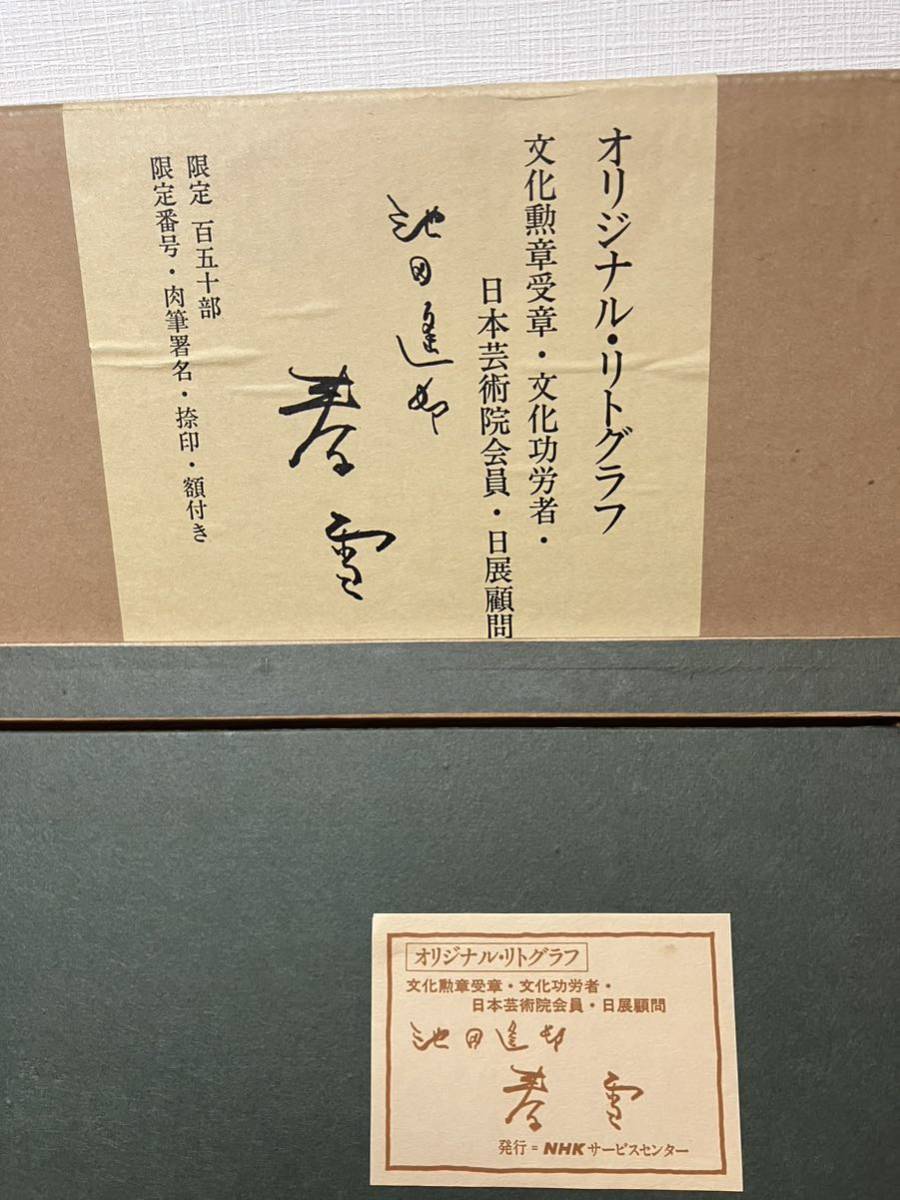 オリジナル・リトグラフ
文化勲章受章・文化功労者・
日本芸術院会員・日展顧問
池田遙邨
春雪
限定 百五十部
限定番号・肉筆署名・捺印・額付き
オリジナル・リトグラフ
文化勲章受章・文化功労者・
日本芸術院会員・日展顧問
池田遙邨
春雪
発行=NHKサービスセンター